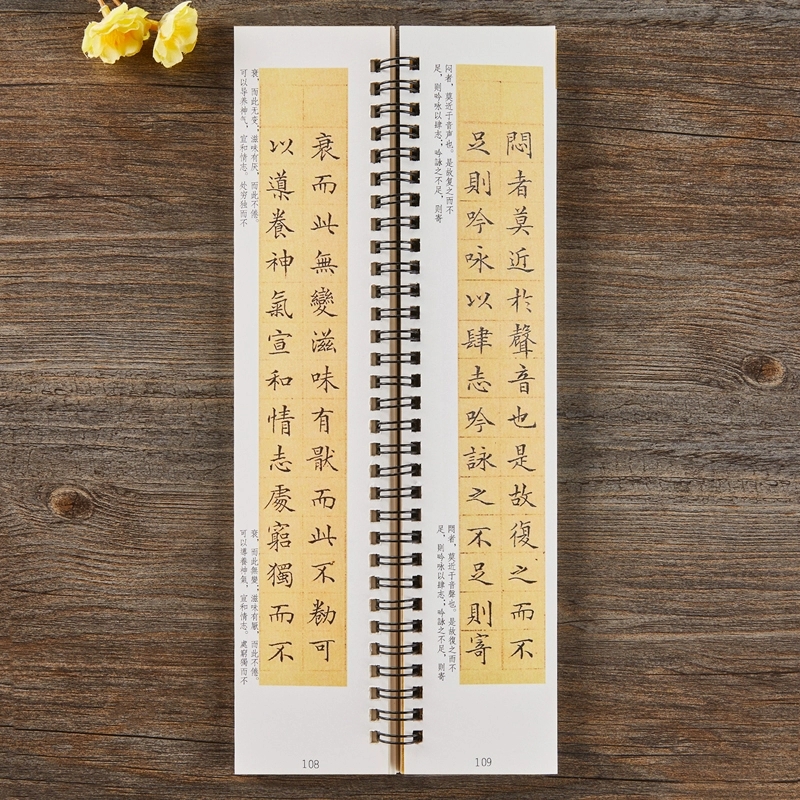 衰而此無變滋味有猒而此不勌可
以導養神氣宣和情志處窮獨而不
衰，而此无变；滋味有厌，而此不倦。
可以导养神气，宣和情志。处穷独而不
衰，而此無變；滋味有厭，而此不倦。
可以導養神氣，宣和情志。處窮獨而不
108
悶者莫近於聲音也是故復之而不
足則吟咏以肆志吟詠之不足則寄
闷者，莫近于音声也。是故复之而不
足，则吟咏以肆志；吟詠之不足，则寄
悶者，莫近于音聲也。是故復之而不
足，則吟咏以肆志；吟詠之不足，則寄
109